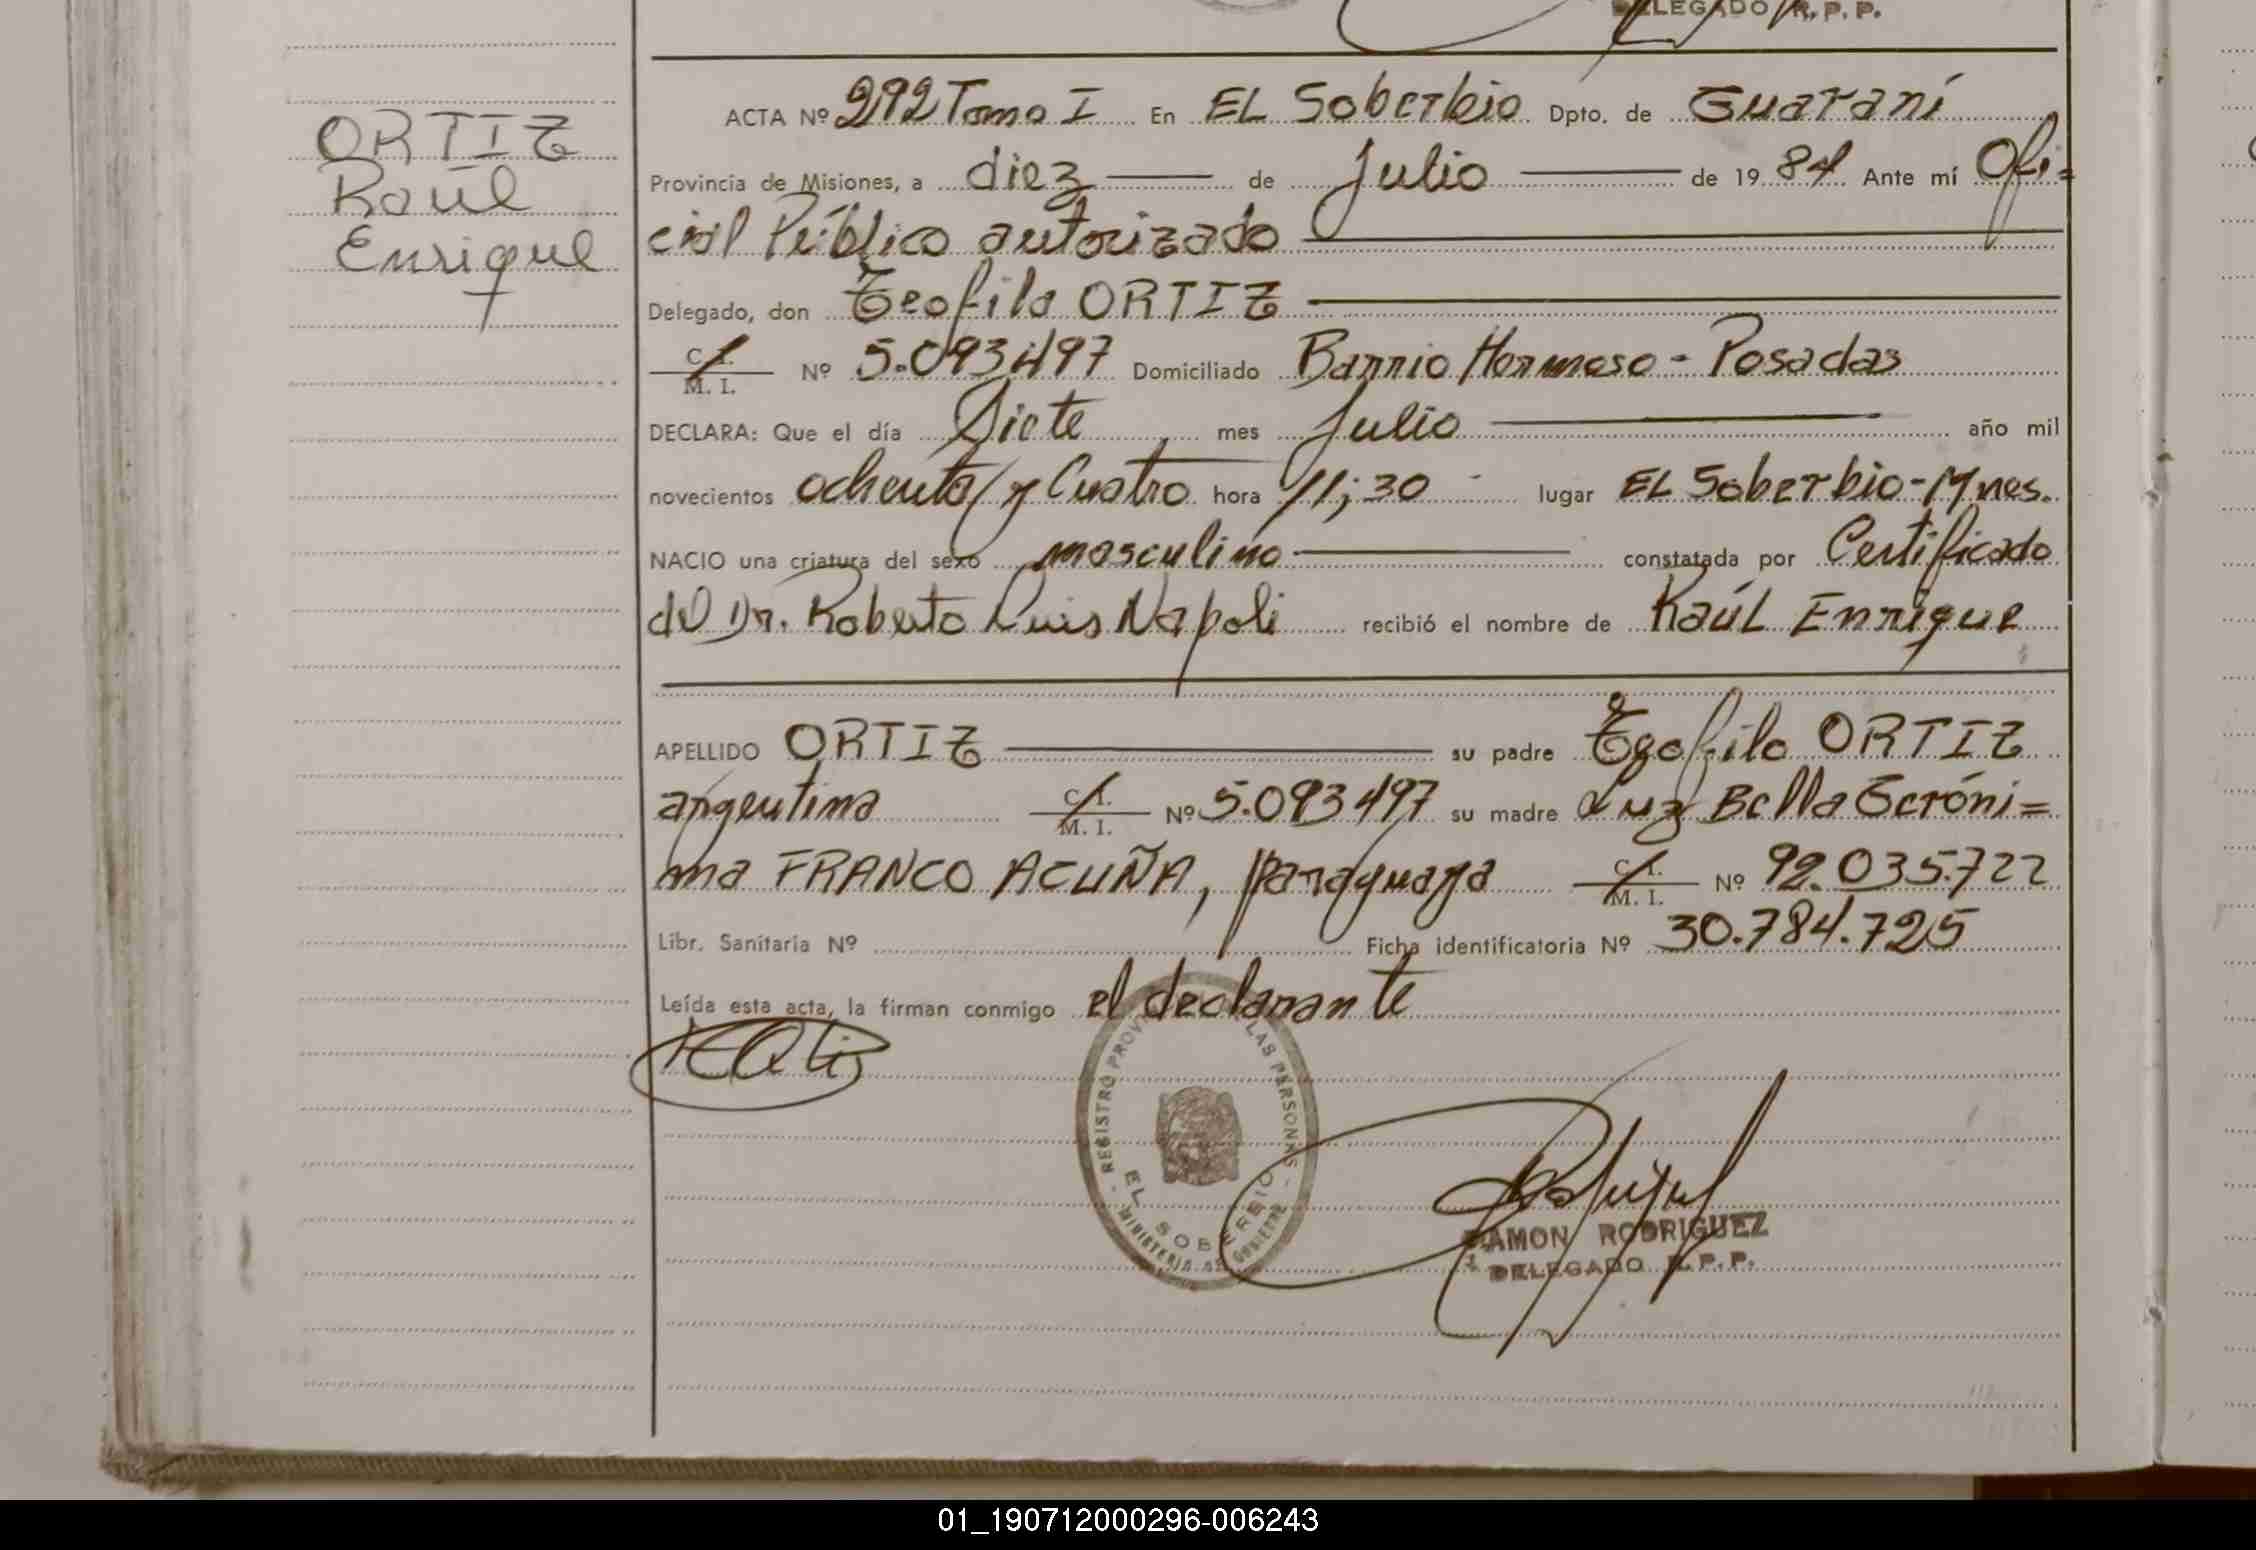 DELEGADO R. P. P.
ORTIZ
Raúl
Enrique
ACTA Nº 292 Tomo I En EL Soberbio Dpto. de Guaraní
Provincia de Misiones, a diez de Julio de 1984 Ante mí Ofi=
cial Público autorizado
Delegado, don Teofilo ORTIZ
C. I. / M. I. Nº 5.093497 Domiciliado Barrio Hermoso - Posadas
DECLARA: Que el día Siete mes Julio año mil
novecientos ochenta y Cuatro hora 11;30 lugar EL Soberbio-Mnes.
NACIO una criatura del sexo masculino constatada por Certificado
del Dr. Roberto Luis Napoli recibió el nombre de Raúl Enrique
APELLIDO ORTIZ su padre Teofilo ORTIZ
argentina C. I. / M. I. Nº 5.093497 su madre Luz Bella Geróni=
ma FRANCO ACUÑA, paraguaya C. I. / M. I. Nº 92.035.722
Libr. Sanitaria Nº Ficha identificatoria Nº 30.784.725
Leída esta acta, la firman conmigo el declarante
- REGISTRO PROV LAS PERSONAS -
EL SOBERBIO
MINISTERIO DE GOBIERNO
RAMON RODRIGUEZ
DELEGADO R. P. P.
01_190712000296-006243